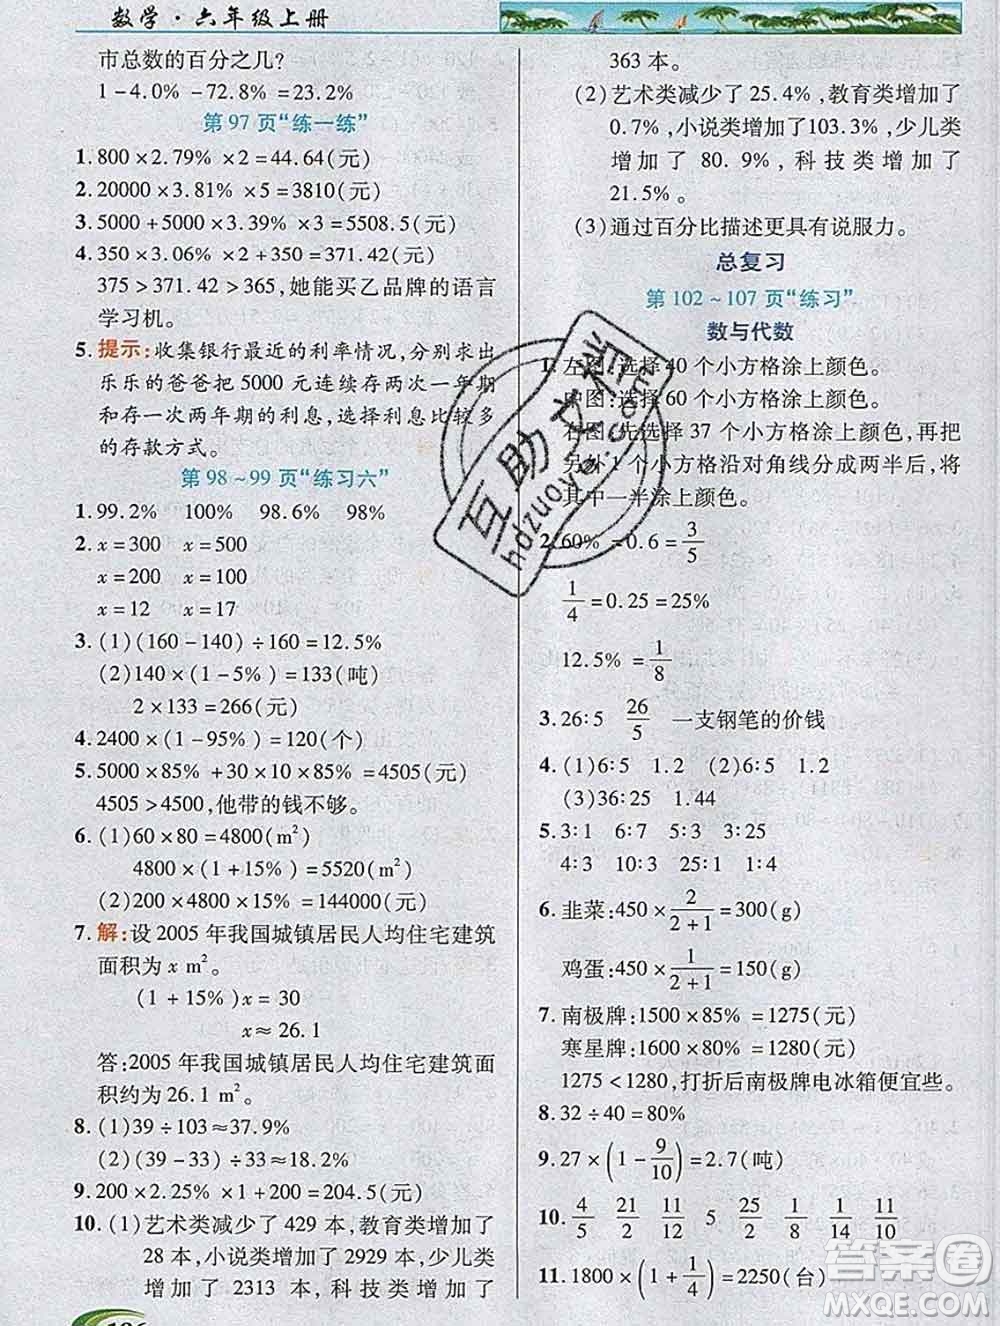 数学·六年级上册
市总数的百分之几?
1-4.0%-72.8%=23.2%
第97页“练一练”
1.800×2.79%×2=44.64(元)
2.20000×3.81%×5=3810(元)
3.5000+5000×3.39%×3=5508.5(元)
4.350×3.06%×2+350=371.42(元)
375>371.42>365,她能买乙品牌的语言
学习机。
5.提示:收集银行最近的利率情况,分别求出
乐乐的爸爸把5000元连续存两次一年期
和存一次两年期的利息,选择利息比较多
的存款方式。
第98~99页“练习六”
1.99.2% 100% 98.6% 98%
2.x=300 x=500
x=200 x=100
x=12 x=17
3.(1)(160-140)÷160=12.5%
(2)140×(1-5%)=133(吨)
2×133=266(元)
4.2400×(1-95%)=120(个)
5.5000×85%+30×10×85%=4505(元)
4505>4500,他带的钱不够。
6.(1)60×80=4800(m²)
4800×(1+15%)=5520(m²)
(2)200×4800×15%=144000(元)
7.解:设2005年我国城镇居民人均住宅建筑
面积为x m²。
(1+15%)x=30
x≈26.1
答:2005年我国城镇居民人均住宅建筑面
积约为26.1 m²。
8.(1)39÷103≈37.9%
(2)(39-33)÷33≈18.2%
9.200×2.25%×1+200=204.5(元)
10.(1)艺术类减少了429本,教育类增加了
28本,小说类增加了2929本,少儿类
增加了2313本,科技类增加了
363本。
(2)艺术类减少了25.4%,教育类增加了
0.7%,小说类增加了103.3%,少儿类
增加了80.9%,科技类增加了
21.5%。
(3)通过百分比描述更具有说服力。
总复习
第102~107页“练习”
数与代数
1.左图:选择40个小方格涂上颜色。
中图:选择60个小方格涂上颜色。
右图:先选择37个小方格涂上颜色,再把
另外1个小方格沿对角线分成两半后,将
其中一半涂上颜色。
2.60%=0.6=3/5
1/4=0.25=25%
12.5%=1/8
3.26∶5 26/5 一支钢笔的价钱
4.(1)6∶5 1.2 (2)6∶5 1.2
(3)36∶25 1.44
5.3∶1 6∶7 5∶3 3∶25
4∶3 10∶9 25∶1 1∶4
6.韭菜:450×2/(2+1)=300(g)
鸡蛋:450×1/(2+1)=150(g)
7.南极牌:1500×85%=1275(元)
寒星牌:1600×80%=1280(元)
1275<1280,打折后南极牌电冰箱便宜些。
8.32÷40=80%
9.27×(1-9/10)=2.7(吨)
10.4/5 21/2 11/12 5 25/32 1/8 1/14 11/10
11.1800×(1+1/4)=2250(台)
互助文档
hdzuoye.com
答案圈
MXQE.COM